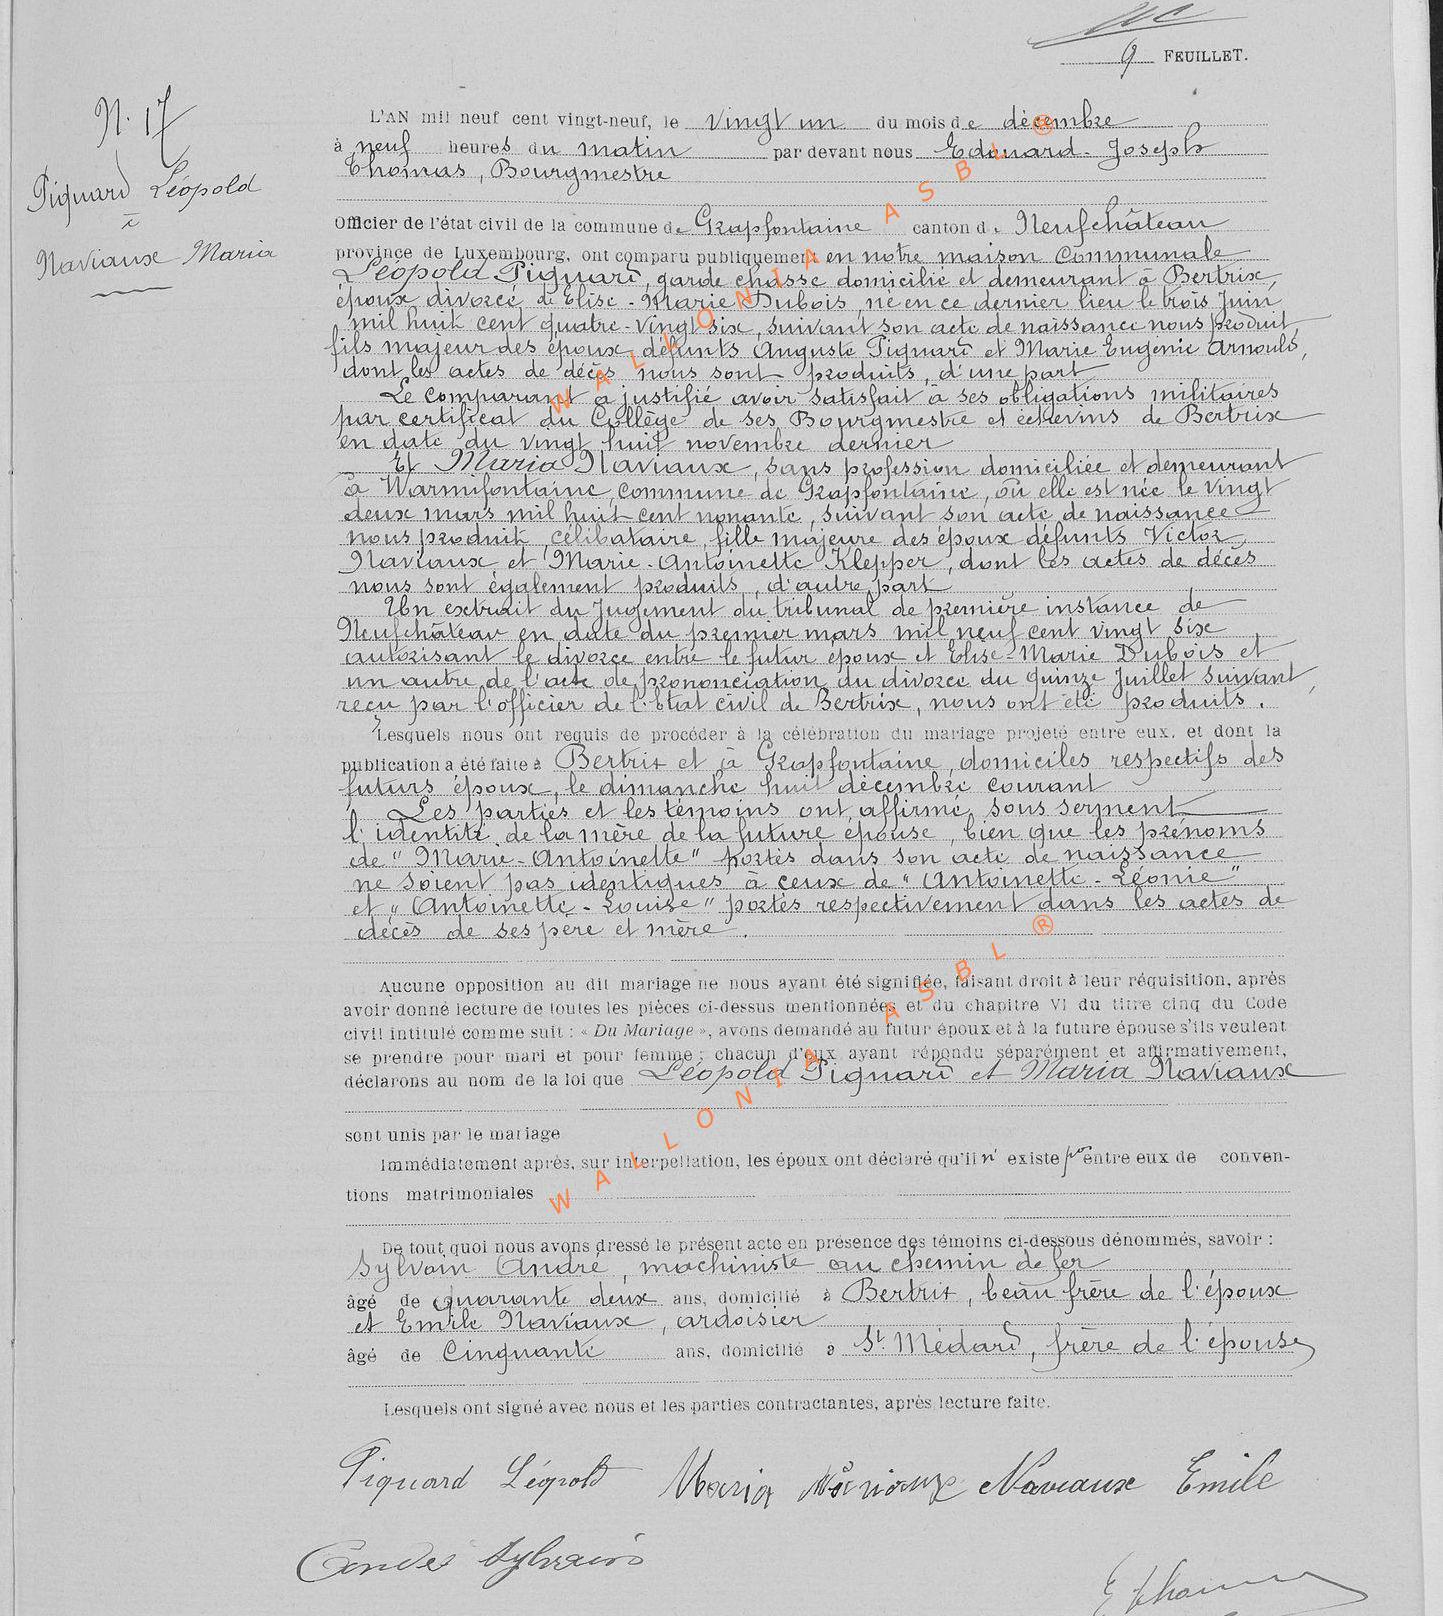 9 FEUILLET.
N. 17
Piquard Léopold
à
Naviaux Maria
L'AN mil neuf cent vingt-neuf, le vingt un du mois de décembre
à neuf heures du matin par devant nous Edouard-Joseph
Thomas, Bourgmestre
Officier de l'état civil de la commune de Grapfontaine canton de Neufchâteau
province de Luxembourg, ont comparu publiquement en notre maison communale
Léopold Piquard, garde chasse domicilié et demeurant à Bertrix,
époux divorcé de Elise-Marie Dubois, né en ce dernier lieu le trois Juin
mil huit cent quatre-vingt six, suivant son acte de naissance nous produit,
fils majeur des époux défunts Auguste Piquard et Marie Eugénie Arnould,
dont les actes de décès nous sont produits, d'une part
Le comparant a justifié avoir satisfait à ses obligations militaires
par certificat du Collège de ses Bourgmestre et échevins de Bertrix
en date du vingt huit novembre dernier
Et Maria Naviaux, sans profession domiciliée et demeurant
à Warmifontaine, commune de Grapfontaine, où elle est née le vingt
deux mars mil huit cent nonante, suivant son acte de naissance
nous produit, célibataire, fille majeure des époux défunts Victor
Naviaux et Marie-Antoinette Klepper, dont les actes de décès
nous sont également produits, d'autre part
Un extrait du Jugement du tribunal de première instance de
Neufchâteau en date du premier mars mil neuf cent vingt six
autorisant le divorce entre le futur époux et Elise-Marie Dubois et
un autre de l'acte de prononciation du divorce du quinze Juillet suivant,
reçu par l'officier de l'Etat civil de Bertrix, nous ont été produits.
Lesquels nous ont requis de procéder à la célébration du mariage projeté entre eux, et dont la
publication a été faite à Bertrix et à Grapfontaine, domiciles respectifs des
futurs époux, le dimanche huit décembre courant
Les parties et les témoins ont affirmé sous serment
l'identité de la mère de la future épouse, bien que les prénoms
de "Marie-Antoinette" portés dans son acte de naissance
ne soient pas identiques à ceux de "Antoinette-Léonie"
et "Antoinette-Louise" portés respectivement dans les actes de
décès de ses père et mère.
Aucune opposition au dit mariage ne nous ayant été signifiée, faisant droit à leur réquisition, après
avoir donné lecture de toutes les pièces ci-dessus mentionnées et du chapitre VI du titre cinq du Code
civil intitulé comme suit : « Du Mariage », avons demandé au futur époux et à la future épouse s'ils veulent
se prendre pour mari et pour femme ; chacun d'eux ayant répondu séparément et affirmativement,
déclarons au nom de la loi que Léopold Piquard et Maria Naviaux
sont unis par le mariage
Immédiatement après, sur interpellation, les époux ont déclaré qu'il n'existe pas entre eux de conven-
tions matrimoniales
De tout quoi nous avons dressé le présent acte en présence des témoins ci-dessous dénommés, savoir :
Sylvain André, machiniste au chemin de fer
âgé de quarante deux ans, domicilié à Bertrix, beau frère de l'époux
et Emile Naviaux, ardoisier
âgé de Cinquante ans, domicilié à St Médard, frère de l'épouse
Lesquels ont signé avec nous et les parties contractantes, après lecture faite.
Piquard Léopold Maria Naviaux Naviaux Emile
André Sylvain
E Thomas
WALLONIA ASBL ®
WALLONIA ASBL ®